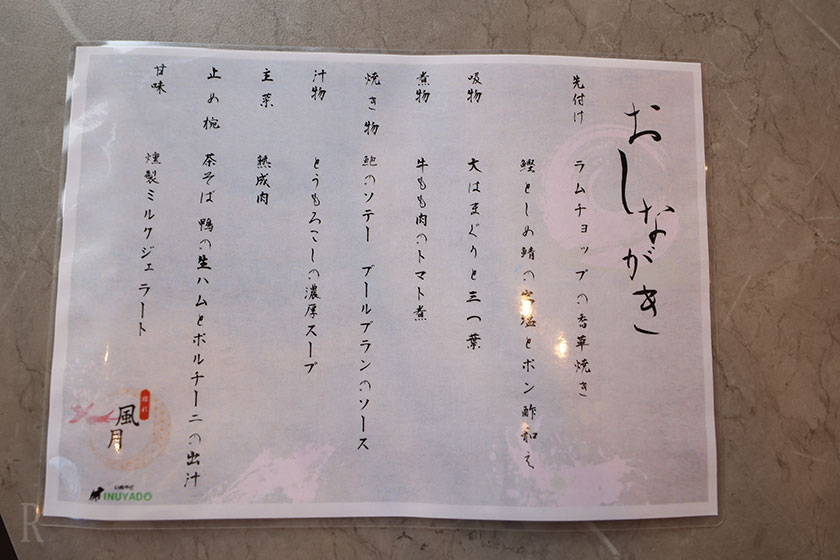 おしながき
先付け ラムチョップの香草焼き
鰹としめ鯖の岩塩とポン酢和え
吸物 大はまぐりと三つ葉
煮物 牛もも肉のトマト煮
焼き物 鮑のソテー ブールブランのソース
汁物 とうもろこしの濃厚スープ
主菜 熟成肉
止め椀 茶そば 鴨の生ハムとポルチーニの出汁
甘味 燻製ミルクジェラート
風月
INUYADO
R